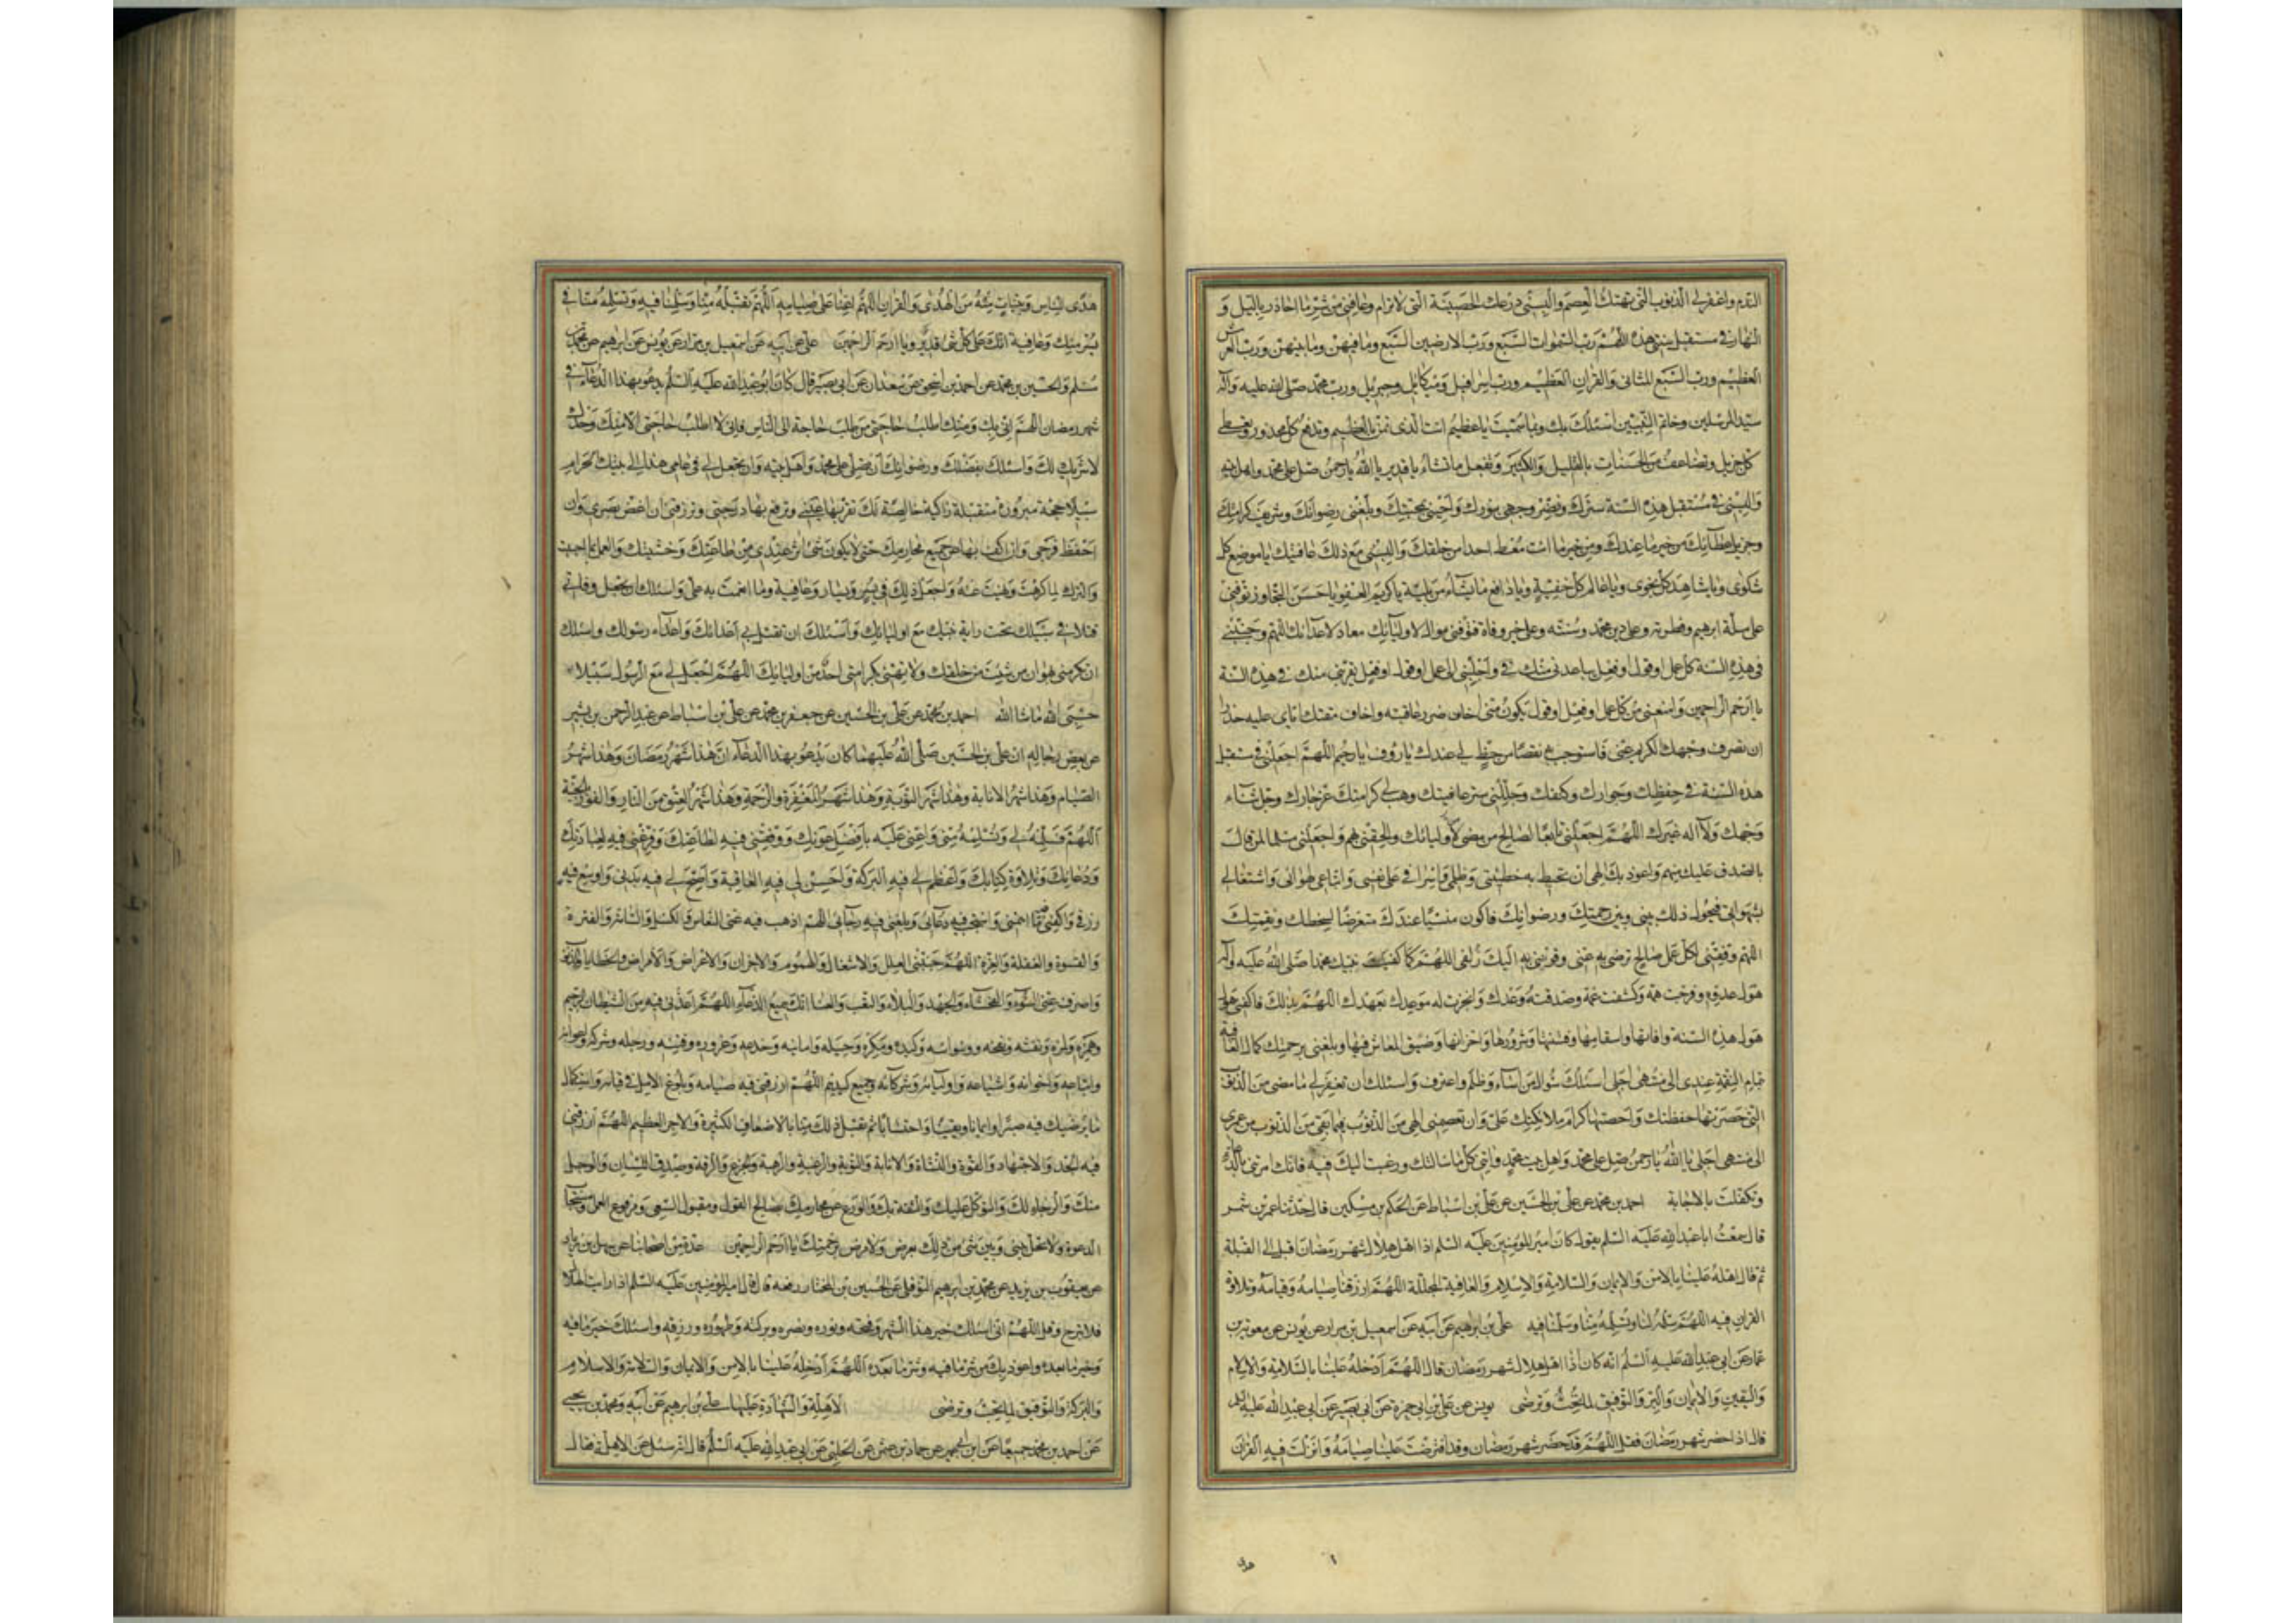 الندم واغفر لي الذنوب التي تهتك العصم والبسني درعك الحصينة التي لا ترام وعافني من شر ما احاذر بالليل و
النهار في مستقبل سنتي هذه اللهم رب السموات السبع ورب الارضين السبع وما فيهن وما بينهن ورب العرش
العظيم ورب السبع المثاني والقران العظيم ورب اسرافيل وميكائيل وجبريل ورب محمد صلى الله عليه وآله
سيد المرسلين وخاتم النبيين اسئلك بك وبما سميت يا عظيم انت الذي تمن بالعظيم وتدفع كل محذور وتعطى
كل جزيل وتضاعف من الحسنات بالقليل والكثير وتفعل ما تشاء يا قدير يا الله يا رحمن صل على محمد واهل بيته
والبسني في مستقبل هذه السنة سترك ونضر وجهي بنورك واحيني بمحبتك وبلغني رضوانك وشريف كرامتك
وجزيل عطائك من خير ما عندك ومن خير ما انت معط احدا من خلقك والبسني مع ذلك عافيتك يا موضع كل
شكوى ويا شاهد كل نجوى ويا عالم كل خفية ويا دافع ما تشاء من بلية يا كريم العفو يا حسن التجاوز توفني
على ملة ابرهيم وفطرته وعلى دين محمد وسنته وعلى خير وفاة فتوفني مواليا لاوليائك معاديا لاعدائك اللهم وجنبني
في هذه السنة كل عمل او قول او فعل يباعدني منك واجلبني الى كل عمل او قول او فعل يقربني منك في هذه السنة
يا ارحم الراحمين وامنعني من كل عمل او فعل او قول يكون مني اخاف ضرر عاقبته واخاف مقتك اياي عليه حذار
ان تصرف وجهك الكريم عني فاستوجب به نقصا من حظ لي عندك يا رؤف يا رحيم اللهم اجعلني في مستقبل
هذه السنة في حفظك وجوارك وكنفك وجللني ستر عافيتك وهب لي كرامتك عز جارك وجل ثناء
وجهك ولا اله غيرك اللهم اجعلني تابعا لصالح من مضى من اوليائك والحقني بهم واجعلني مسلما لمن قال
بالصدق عليك منهم واعوذ بك الهي ان تحيط به خطيئتي وظلمي واسرافي على نفسي واتباعي لهواي واشتغالي
بشهواتي فيحول ذلك بيني وبين رحمتك ورضوانك فاكون منسيا عندك متعرضا لسخطك ونقمتك
اللهم وفقني لكل عمل صالح ترضى به عني وقربني به اليك زلفى اللهم كما كفيت نبيك محمدا صلى الله عليه وآله
هول عدوه وفرجت همه وكشفت غمه وصدقته وعدك وانجزت له موعدك بعهدك اللهم بذلك فاكفني
هول هذه السنة وافاتها واسقامها وفتنتها وشرورها واحزانها وضيق المعاش فيها وبلغني برحمتك كمال العافية
بتمام النعمة عندي الى منتهى اجلي اسئلك سؤال من اساء وظلم واعترف واسئلك ان تغفر لي ما مضى من الذنوب
التي حصرتها حفظتك واحصتها كرام ملائكتك علي وان تعصمني الهي من الذنوب فيما بقي من عمري
الى منتهى اجلي يا الله يا رحمن صل على محمد واهل بيت محمد وآتني كل ما سالتك ورغبت اليك فيه فانك امرتني بالدعاء
وتكفلت بالاجابة احمد بن محمد عن علي بن الحسين عن علي بن اسباط عن الحكم بن مسكين قال حدثنا عمرو بن شمر
قال سمعت ابا عبد الله عليه السلم يقول كان امير المؤمنين عليه السلم اذا اهل هلال شهر رمضان اقبل الى القبلة
ثم قال اهله علينا بالامن والايمان والسلامة والاسلام والعافية المجللة اللهم ارزقنا صيامه وقيامه وتلاوة
القران فيه اللهم سلمه لنا وتسلمه منا وسلمنا فيه علي بن ابرهيم عن ابيه عن اسمعيل بن مرار عن يونس عن معوية بن
عمار عن ابي عبد الله عليه السلم انه كان اذا اهل هلال شهر رمضان قال اللهم ادخله علينا بالسلامة والاسلام
واليقين والايمان والبر والتوفيق لما تحب وترضى يونس عن علي بن ابي حمزة عن ابي بصير عن ابي عبد الله عليه السلم
قال اذا حضر شهر رمضان فقل اللهم قد حضر شهر رمضان وقد افترضت علينا صيامه وانزلت فيه القران
هدى للناس وبينات من الهدى والفرقان اللهم اعنا على صيامه اللهم تقبله منا وسلمنا فيه وتسلمه منا في
يسر منك وعافية انك على كل شئ قدير ويا ارحم الراحمين علي عن ابيه عن اسمعيل بن مرار عن يونس عن ابرهيم عن محمد بن
مسلم والحسين بن محمد عن احمد بن اسحق عن سعدان عن ابي بصير قال كان ابو عبد الله عليه السلم يدعو بهذا الدعاء في
شهر رمضان اللهم اني بك ومنك اطلب حاجتي من طلب حاجة الى الناس فاني لا اطلب حاجتي الا منك وحدك
لا شريك لك واسئلك بفضلك ورضوانك ان تصلي على محمد واهل بيته وان تجعل لي في عامي هذا الى بيتك الحرام
سبيلا حجة مبرورة متقبلة زاكية خالصة لك تقر بها عيني وترفع بها درجتي وترزقني ان اغض بصري وان
احفظ فرجي وان اكف بها عن جميع محارمك حتى لا يكون شئ اثر عندي من طاعتك وخشيتك والعمل بما احببت
والترك لما كرهت ونهيت عنه واجعل ذلك في يسر ويسار وعافية وما انعمت به علي واسئلك ان تجعل وفاتي
قتلا في سبيلك تحت راية نبيك مع اوليائك واسئلك ان تقتل بي اعدائك واعداء رسولك واسئلك
ان تكرمني بهوان من شئت من خلقك ولا تهني بكرامة احد من اوليائك اللهم اجعل لي مع الرسول سبيلا
حسبي الله ما شاء الله احمد بن محمد عن علي بن الحسين عن جعفر بن محمد عن علي بن اسباط عن عبد الرحمن بن بشير
عن بعض رجاله ان علي بن الحسين صلى الله عليهما كان يدعو بهذا الدعاء ان هذا شهر رمضان وهذا شهر
الصيام وهذا شهر الانابة وهذا شهر التوبة وهذا شهر المغفرة والرحمة وهذا شهر العتق من النار والفوز بالجنة
اللهم فسلمه لي وتسلمه مني واعني عليه بافضل عونك ووفقني فيه لطاعتك وفرغني فيه لعبادتك
ودعائك وتلاوة كتابك واعظم لي فيه البركة واحسن لي فيه العافية واصح لي فيه بدني واوسع فيه
رزقي واكفني فيه ما اهمني واستجب فيه دعائي وبلغني فيه رجائي اللهم اذهب عني فيه النعاس والكسل والسامة والفترة
والقسوة والغفلة والغرة اللهم جنبني فيه العلل والاشغال والهموم والاحزان والاعراض والامراض والخطايا والذنوب
واصرف عني السوء والفحشاء والجهد والبلاء والتعب والعناء انك سميع الدعاء اللهم اعذني فيه من الشيطان الرجيم
وهمزه ولمزه ونفثه ونفخه ووسواسه وكيده ومكره وحيله وامانيه وخدعه وغروره وفتنه ورجله وشركه واعوانه
واتباعه واخوانه واشياعه واوليائه وشركائه وجميع كيدهم اللهم ارزقني فيه صيامه وبلوغ الامل في قيامه واستكمال
ما يرضيك فيه صبرا وايمانا ويقينا واحتسابا ثم تقبل ذلك منا بالاضعاف الكثيرة والاجر العظيم اللهم ارزقني
فيه الجد والاجتهاد والقوة والنشاط والانابة والتوبة والرغبة والرهبة والجزع والرقة وصدق اللسان والوجل
منك والرجاء لك والتوكل عليك والثقة بك والورع عن محارمك بصالح القول ومقبول السعي ومرفوع العمل ومستجاب
الدعوة ولا تحل بيني وبين شئ من ذلك بعرض ولا مرض برحمتك يا ارحم الراحمين عدة من اصحابنا عن سهل بن زياد
عن يعقوب بن يزيد عن محمد بن ابرهيم النوفلي عن الحسين بن المختار رفعه قال قال امير المؤمنين عليه السلم اذا رايت الهلال
فلا تبرح وقل اللهم اني اسئلك خير هذا الشهر وفتحه ونوره ونصره وبركته وطهوره ورزقه واسئلك خير ما فيه
وخير ما بعده واعوذ بك من شر ما فيه وشر ما بعده اللهم ادخله علينا بالامن والايمان والسلامة والاسلام
والبركة والتوفيق لما تحب وترضى الاهلة والشهادة عليها علي بن ابرهيم عن ابيه ومحمد بن يحيى
عن احمد بن محمد جميعا عن ابن ابي عمير عن حماد بن عثمن عن الحلبي عن ابي عبد الله عليه السلم قال انه سئل عن الاهلة فقال